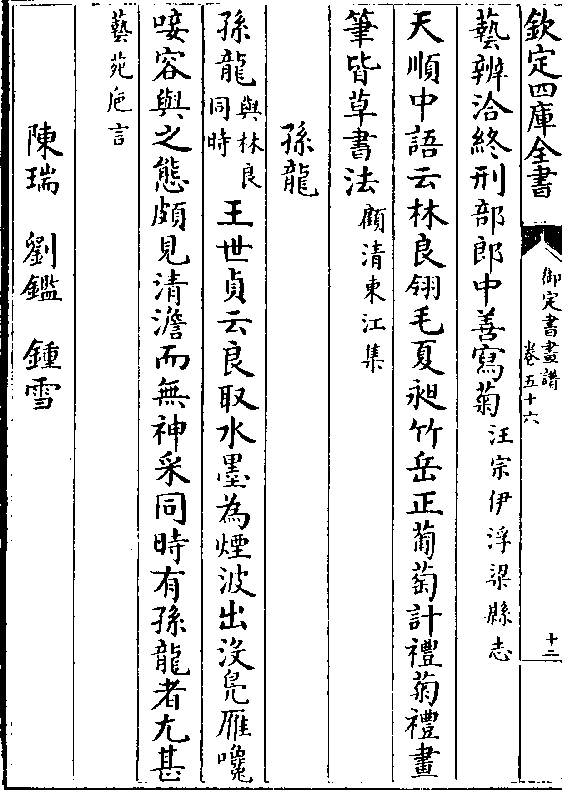 欽定四庫全書
御定書畫譜
卷五十六
十二
藝辨洽終刑部郎中善寫菊汪宗伊浮梁縣志
天順中語云林良翎毛夏昶竹岳正葡萄計禮菊禮畫
筆皆草書法顧清東江集
孫龍
孫龍與林良同時王世貞云良取水墨為煙波出沒鳧雁嚵
唼容與之態頗見清澹而無神采同時有孫龍者尤甚
藝苑巵言
陳瑞 劉鑑 鍾雪